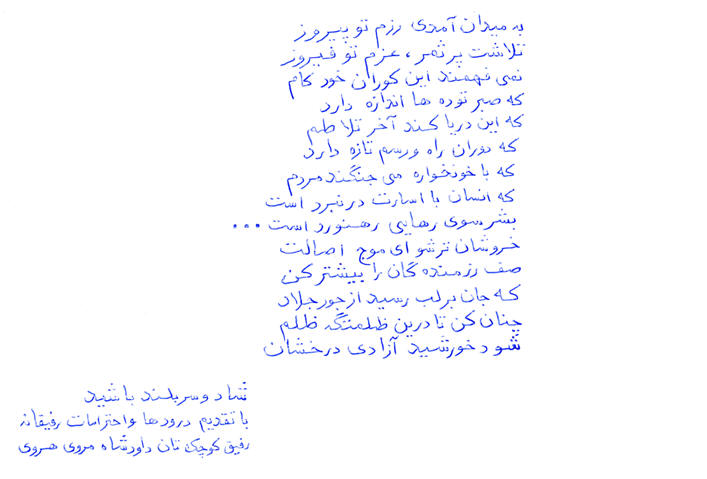 به میدان آمدی رزم تو پیروز
تلاشت پر ثمر ، عزم تو فیروز
نمی فهمند این کوران خود کام
که صبر توده ها اندازه دارد
که این دریا کند آخر تلاطم
که دوران راه و رسم تازه دارد
که با خونخواره می جنگند مردم
که انسان با اسارت در نبرد است
بشر سوی رهایی رهنورد است ...
خروشان تر شو ای موج اصالت
صف رزمنده گان را بیشتر کن
که جان بر لب رسید از جور جلاد
چنان کن تا درین ظلمتگه ظلم
شود خورشید آزادی درخشان
شاد و سربلند باشید
با تقدیم درودها و احترامات رفیقانه
رفیق کوچک تان داودشاه مروی هروی